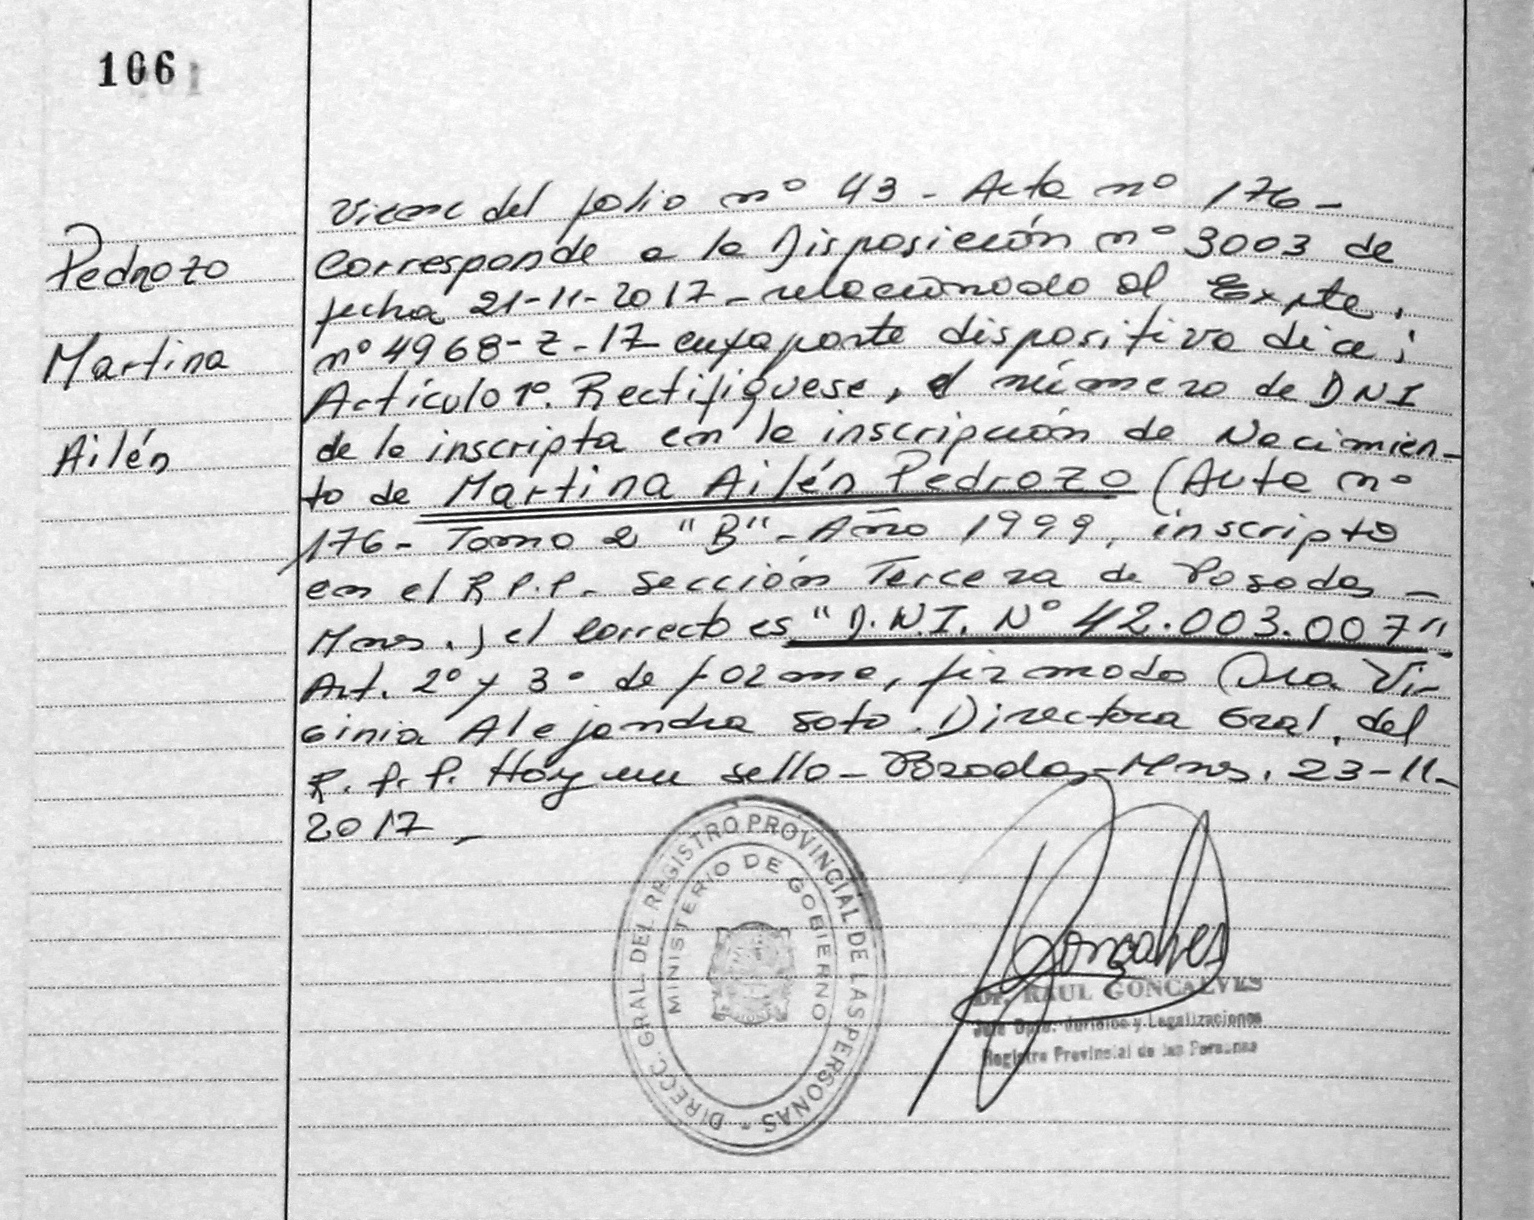 106
Pedrozo
Martina
Ailén
Viene del folio nº 43 - Acta nº 176 -
Corresponde a la Disposición nº 3003 de
fecha 21-11-2017 - relacionado al Expte.
nº 4968-Z-17 cuya parte dispositiva dice:
Artículo 1º. Rectifíquese, el número de DNI
de la inscripta en la inscripción de Nacimien-
to de Martina Ailén Pedrozo (Acta nº
176 - Tomo 2 "B" - Año 1999, inscripta
en el R.P.P. Sección Tercera de Posadas -
Mnes.) el correcto es "D.N.I. Nº 42.003.007"
Art. 2º y 3º de forma, firmado Dra Vir-
ginia Alejandra Soto. Directora Gral. del
R.P.P. Hay un sello - Posadas - Mnes. 23-11-
2017 -
DIRECC. GRAL. DEL REGISTRO PROVINCIAL DE LAS PERSONAS -
MINISTERIO DE GOBIERNO
MISIONES
Gonçalves
Dr. RAUL GONCALVES
Jefe Dpto. Jurídico y Legalizaciones
Registro Provincial de las Personas